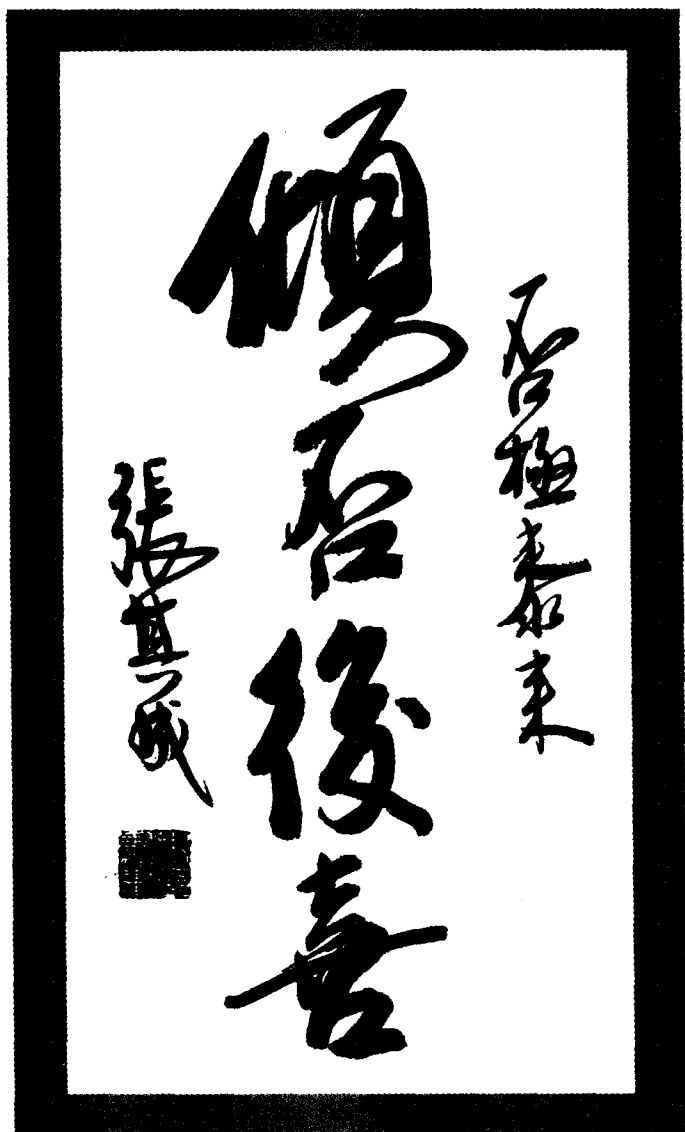 否極泰来
傾否後喜
張其成